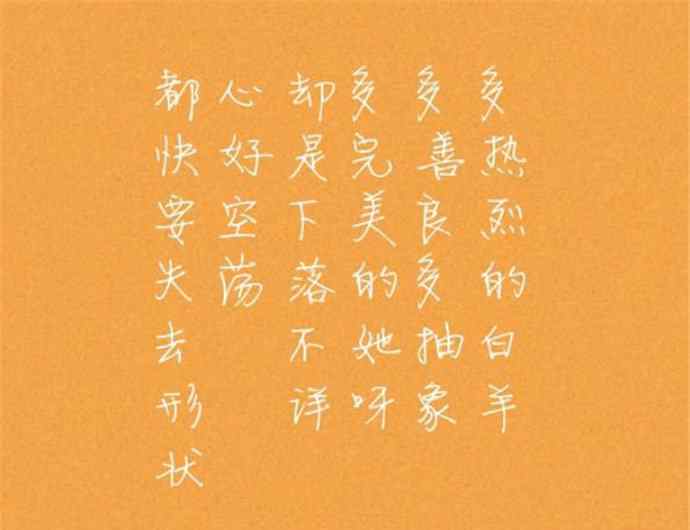 多热烈的白羊
多善良多抽象
多完美的她呀
却是下落不详
心好空荡
都快要失去形状